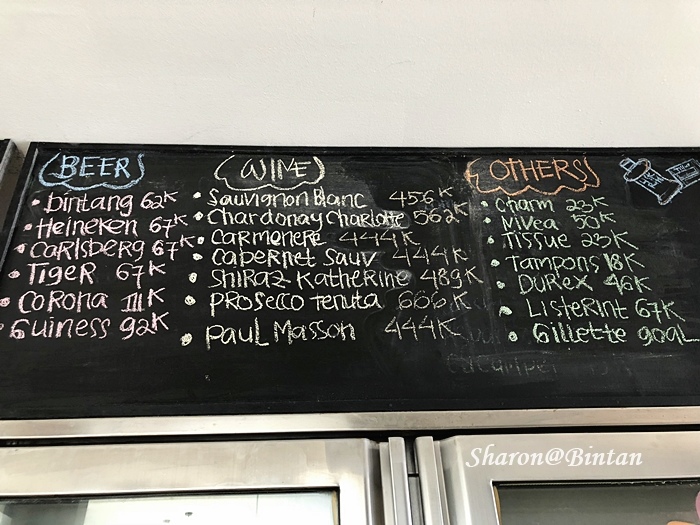 BEER
• Bintang 62K
• Heineken 67K
• Carlsberg 67K
• TIGER 67K
• CORONA 111K
• Guiness 92K
WINE
• Sauvignon Blanc 456K
• Chardonay Charlotte 562K
• Carmenere 444K
• Cabernet Sauv 444K
• Shiraz Katherine 489K
• Prosecco Tenuta 666K
• Paul Masson 444K
OTHERS
• Charm 23K
• Nivea 50K
• Tissue 23K
• Tampons 18K
• Durex 46K
• Listerint 67K
• Gillette goal
Sharon@Bintan